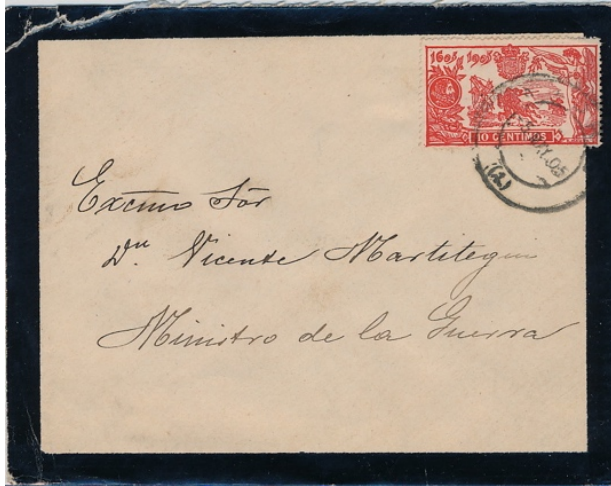 1605 1905
10 CENTIMOS
Excmo Sõr
Dn Vicente Martitegui
Ministro de la Guerra